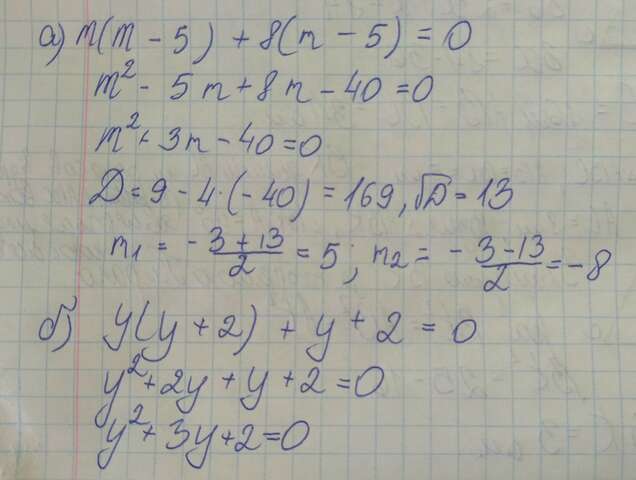 а) m(m - 5) + 8(m - 5) = 0
m² - 5m + 8m - 40 = 0
m² + 3m - 40 = 0
D = 9 - 4·(-40) = 169, √D = 13
m₁ = (-3 + 13)/2 = 5; m₂ = (-3 - 13)/2 = -8
б) y(y + 2) + y + 2 = 0
y² + 2y + y + 2 = 0
y² + 3y + 2 = 0